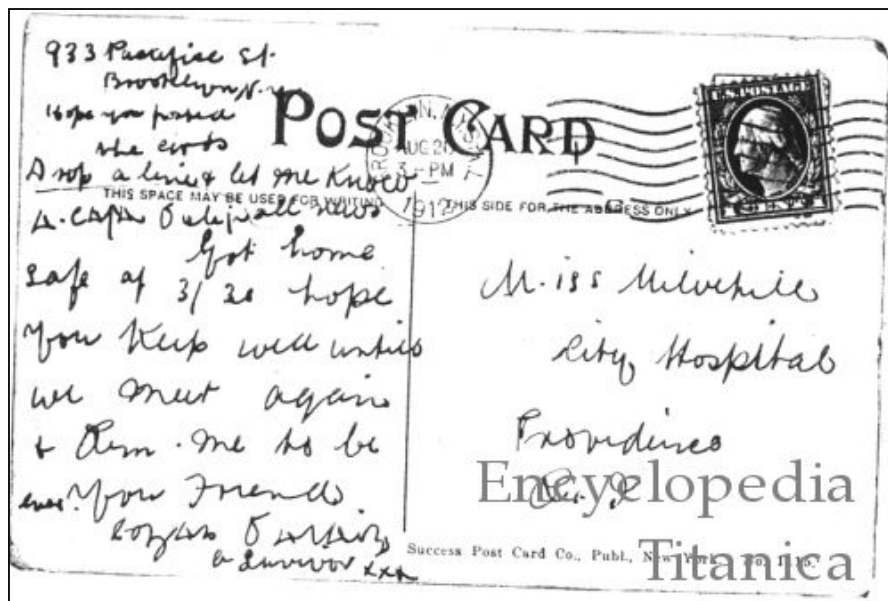 933 Pacific St.
Brooklyn N.Y
Hope you posted
the cards
Drop a line & let me know
all news
POST CARD
THIS SPACE MAY BE USED FOR WRITING
THIS SIDE FOR THE ADDRESS ONLY
AUG 2
3 - PM
1912
U.S. POSTAGE
Got home
safe at 3/30 hope
you keep well until
we meet again
& Rem. me to be
ever your Friend
a Survivor xxx
Miss
City Hospital
Providence
R. I
Success Post Card Co., Publ., New York, No.
Encyclopedia
Titanica